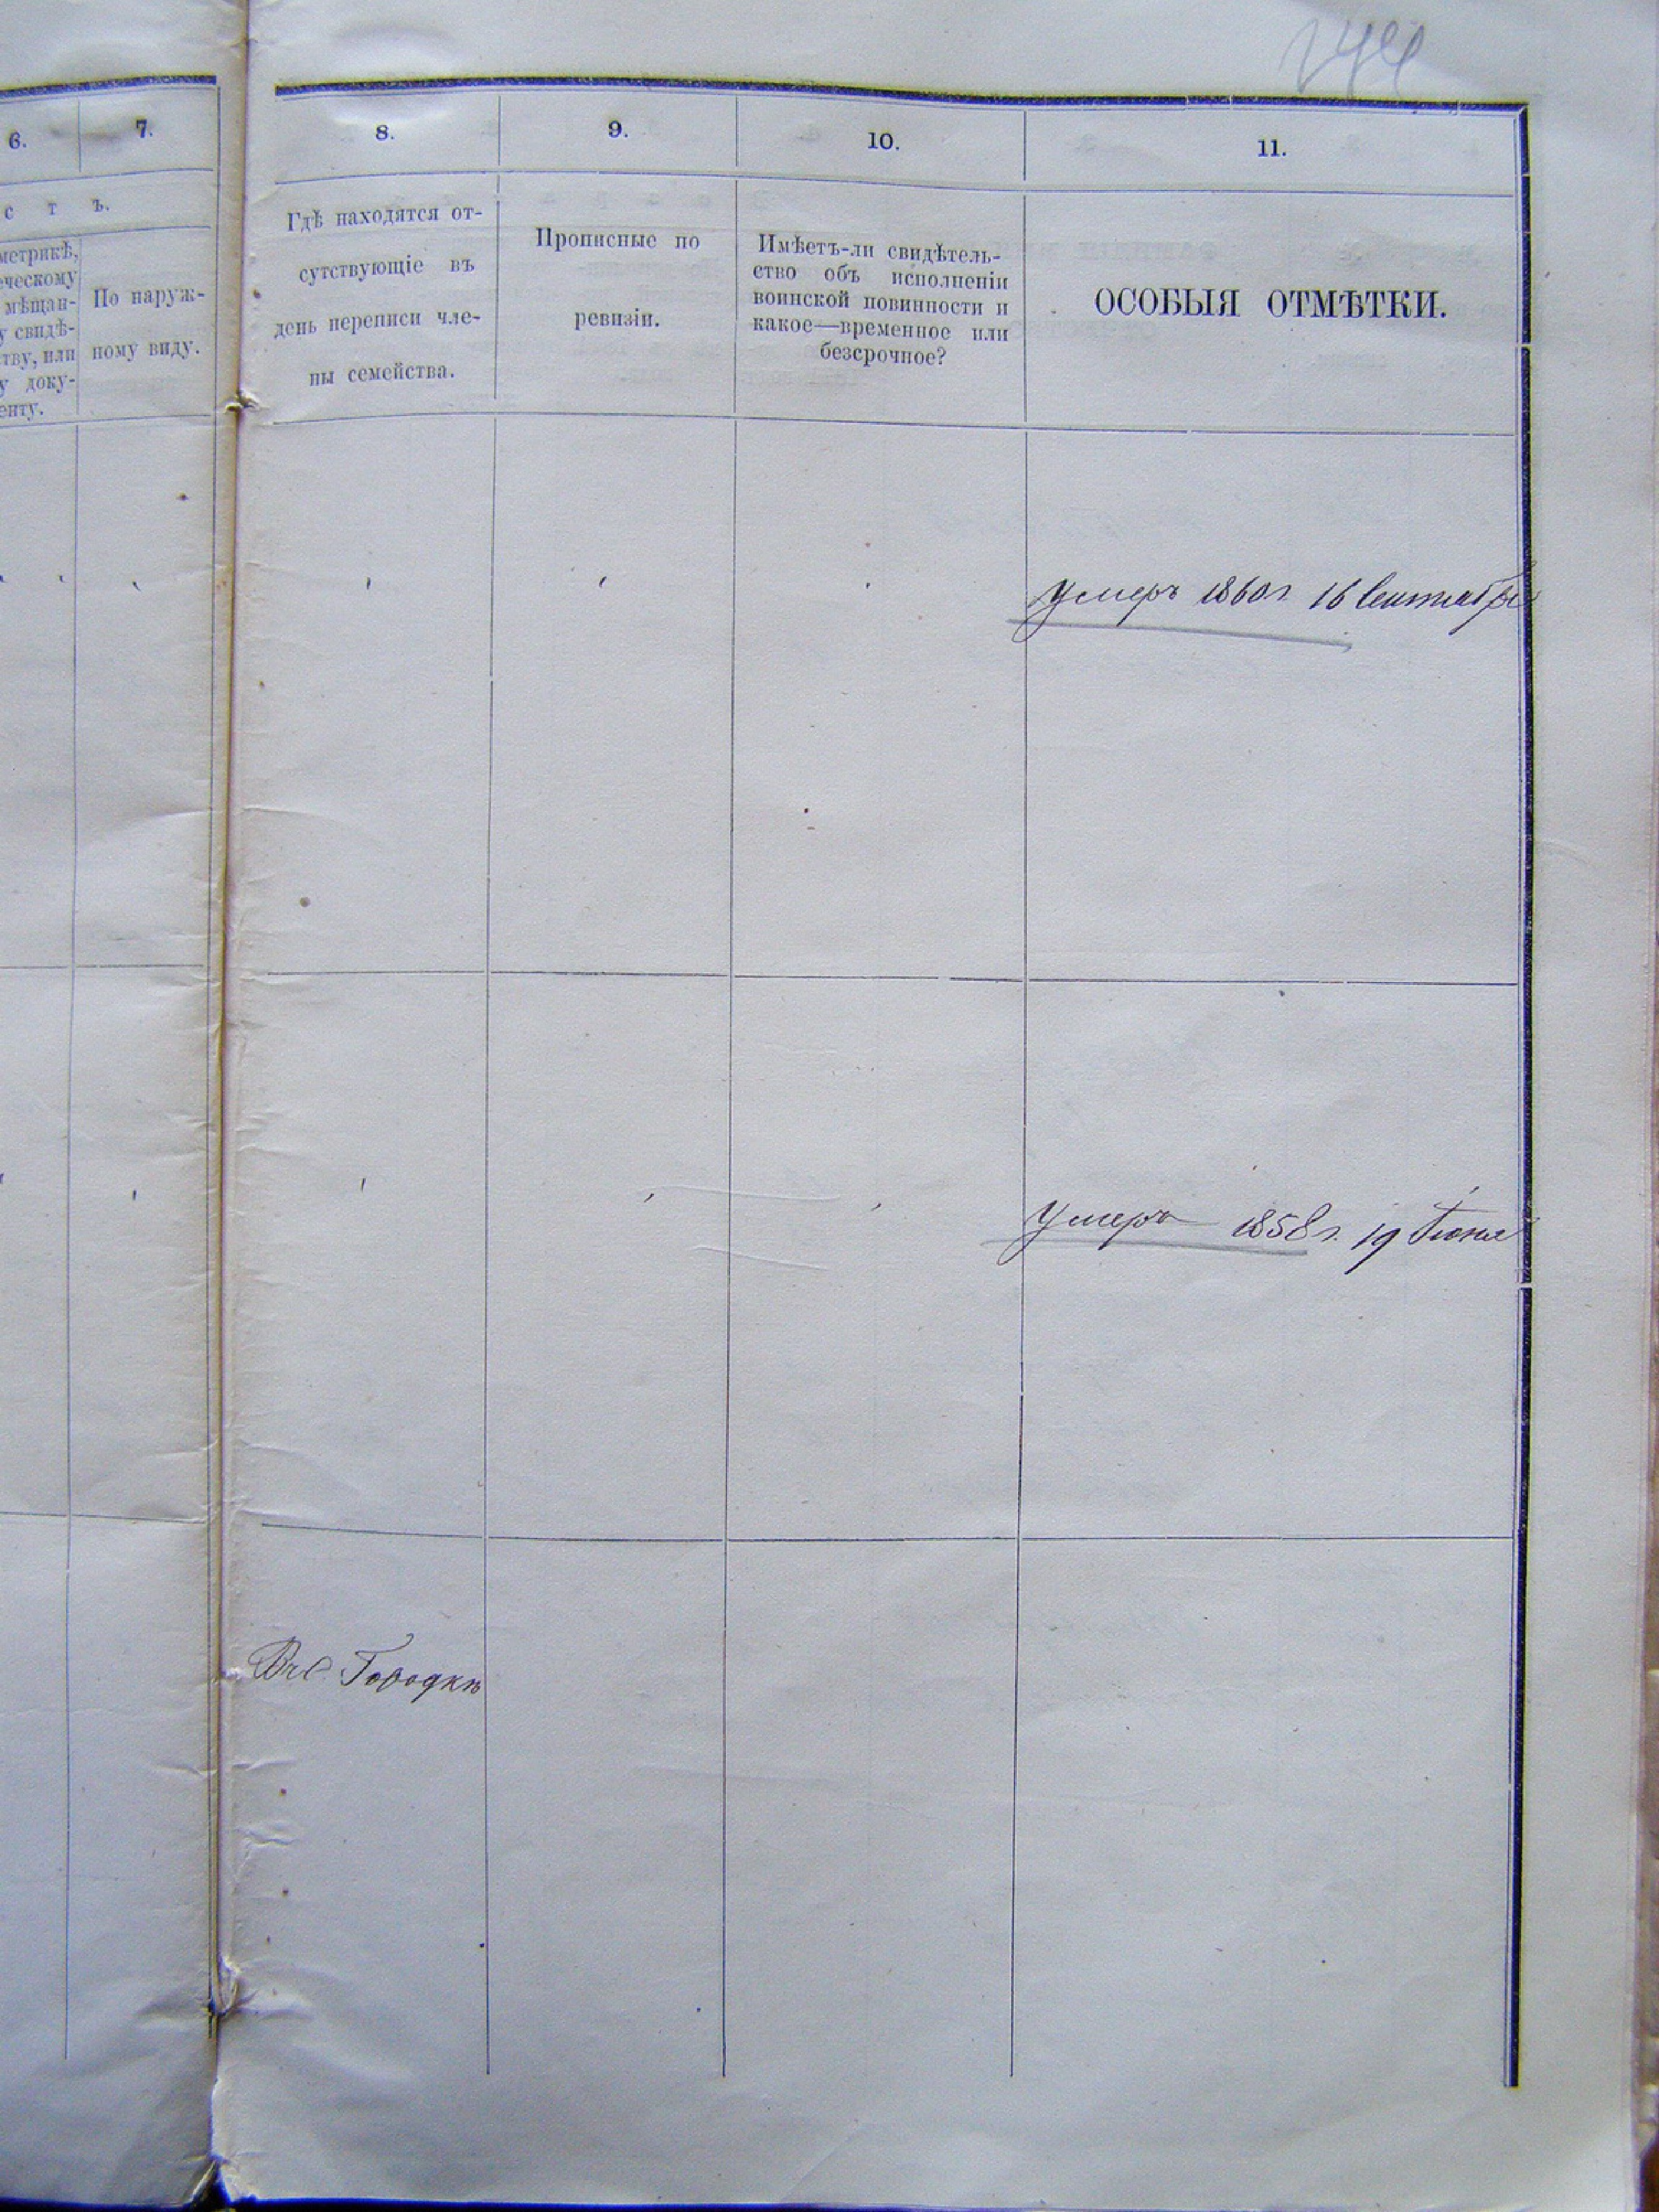 6.
7.
8.
9.
10.
11.
с т ъ.
метрикѣ,
ческому
мѣщан-
у свидѣ-
ству, или
у доку-
енту.
По наруж-
ному виду.
Гдѣ находятся от-
сутствующіе въ
день переписи чле-
ны семейства.
Прописные по
ревизіи.
Имѣетъ-ли свидѣтель-
ство объ исполненіи
воинской повинности и
какое—временное или
безсрочное?
ОСОБЫЯ ОТМѢТКИ.
Умеръ 1860 г. 16 Сентября
Умеръ 1858 г. 19 Іюня
Городкѣ